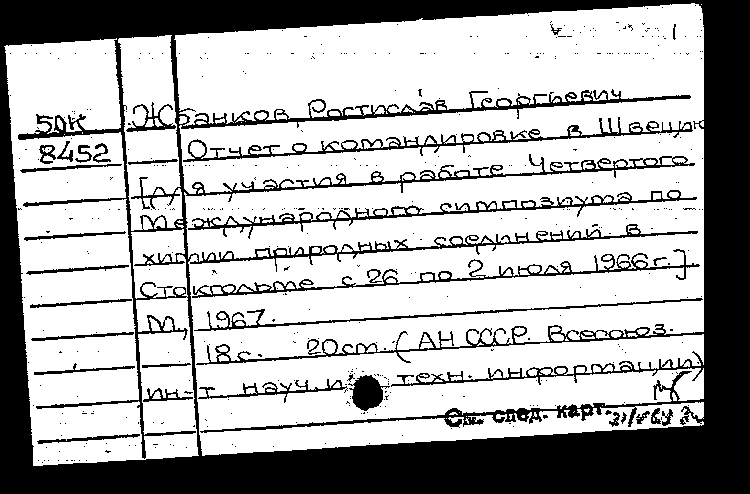 1
50к Жбанков Ростислав Георгиевич
8452 Отчет о командировке в Швецию
[для участия в работе Четвертого
Международного симпозиума по
химии природных соединений в
Стокгольме с 26 по 2 июля 1966г.].
М., 1967.
18с. 20см. (АН СССР. Всесоюз.
ин-т. науч. и техн. информации)
См. след. карт.